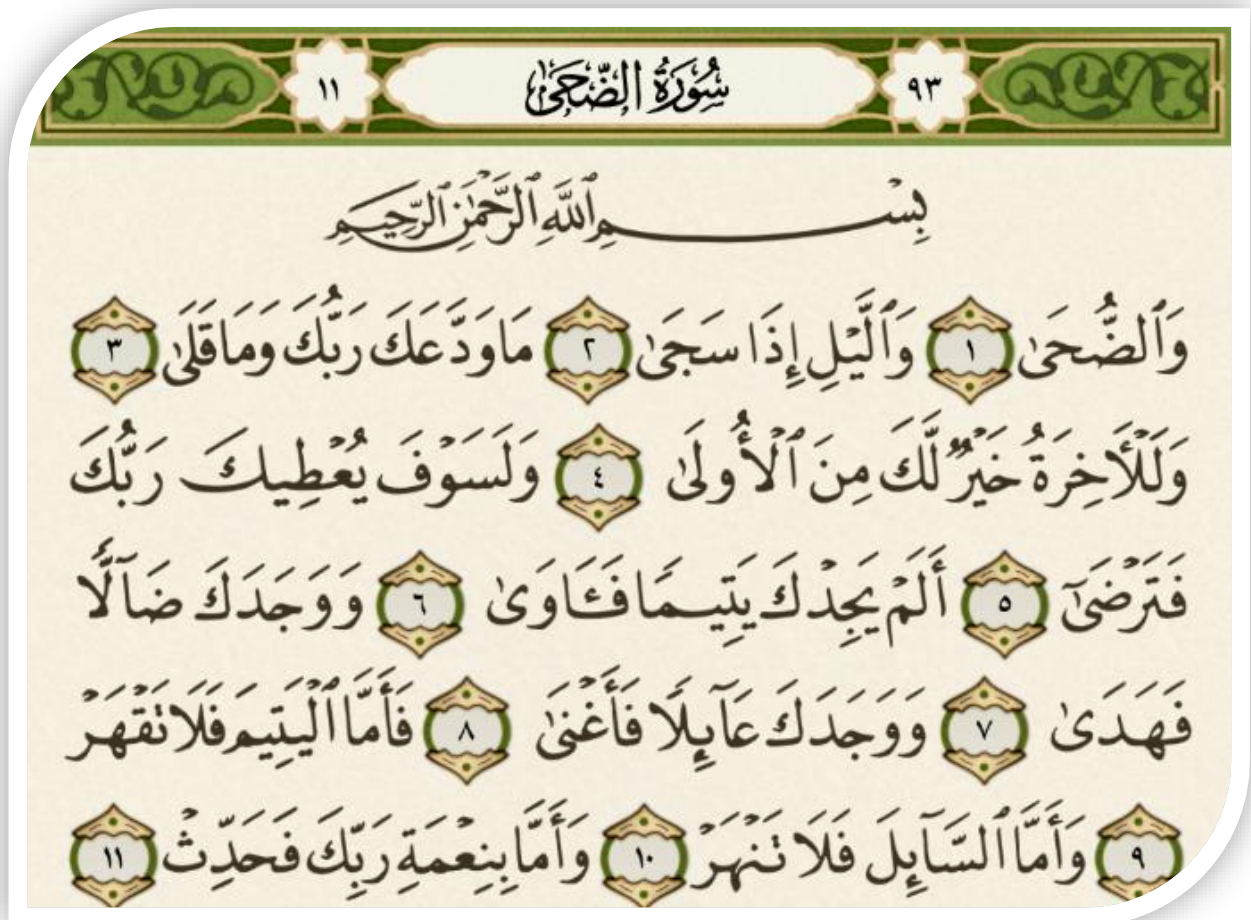 ٩٣ سُورَةُ الضُّحَىٰ ١١
بِسْمِ ٱللَّهِ ٱلرَّحْمَٰنِ ٱلرَّحِيمِ
وَٱلضُّحَىٰ ١ وَٱلَّيْلِ إِذَا سَجَىٰ ٢ مَا وَدَّعَكَ رَبُّكَ وَمَا قَلَىٰ ٣
وَلَلْـَٔاخِرَةُ خَيْرٌ لَّكَ مِنَ ٱلْأُولَىٰ ٤ وَلَسَوْفَ يُعْطِيكَ رَبُّكَ
فَتَرْضَىٰٓ ٥ أَلَمْ يَجِدْكَ يَتِيمًا فَـَٔاوَىٰ ٦ وَوَجَدَكَ ضَآلًّا
فَهَدَىٰ ٧ وَوَجَدَكَ عَآئِلًا فَأَغْنَىٰ ٨ فَأَمَّا ٱلْيَتِيمَ فَلَا تَقْهَرْ
٩ وَأَمَّا ٱلسَّآئِلَ فَلَا تَنْهَرْ ١٠ وَأَمَّا بِنِعْمَةِ رَبِّكَ فَحَدِّثْ ١١